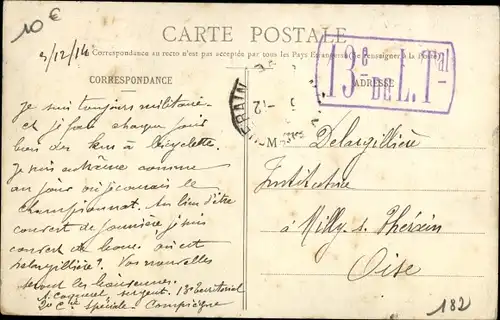 10€
CARTE POSTALE
3/12/14
Correspondance au recto n'est pas acceptée par tous les Pays Etrangers. Se renseigner à la Poste
13e De L. Tal
CORRESPONDANCE
ADRESSE
Je suis toujours militaire
et je fais chaque jour
bien des kms à bicyclette.
Je suis entraîné comme
au jour où je courais le
championnat. Au lieu d'être
couvert de poussière je suis
couvert de boue, où est
Delargillière? Vos nouvelles
seront les bienvenues.
sergent. 13e Territorial
20e Cie Spéciale - Compiègne
M Delargillière
Instituteur
à Milly s. Thérain
Oise
182